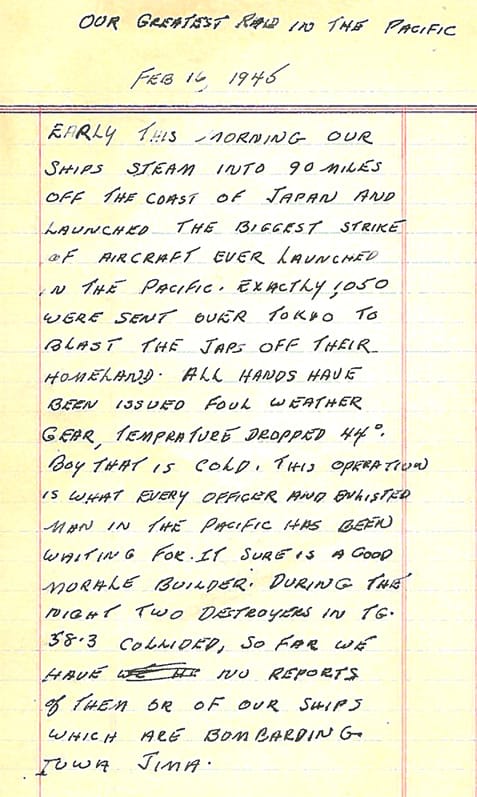 OUR GREATEST RAID IN THE PACIFIC
FEB 16, 1945
EARLY THIS MORNING OUR
SHIPS STEAM INTO 90 MILES
OFF THE COAST OF JAPAN AND
LAUNCHED THE BIGGEST STRIKE
OF AIRCRAFT EVER LAUNCHED
IN THE PACIFIC. EXACTLY 1,050
WERE SENT OVER TOKYO TO
BLAST THE JAPS OFF THEIR
HOMELAND. ALL HANDS HAVE
BEEN ISSUED FOUL WEATHER
GEAR, TEMPRATURE DROPPED 44°.
BOY THAT IS COLD. THIS OPERATION
IS WHAT EVERY OFFICER AND ENLISTED
MAN IN THE PACIFIC HAS BEEN
WAITING FOR. IT SURE IS A GOOD
MORALE BUILDER. DURING THE
NIGHT TWO DESTROYERS IN TG.
58.3 COLLIDED, SO FAR WE
HAVE NO REPORTS
of THEM OR OF OUR SHIPS
WHICH ARE BOMBARDING
IUWA JIMA.